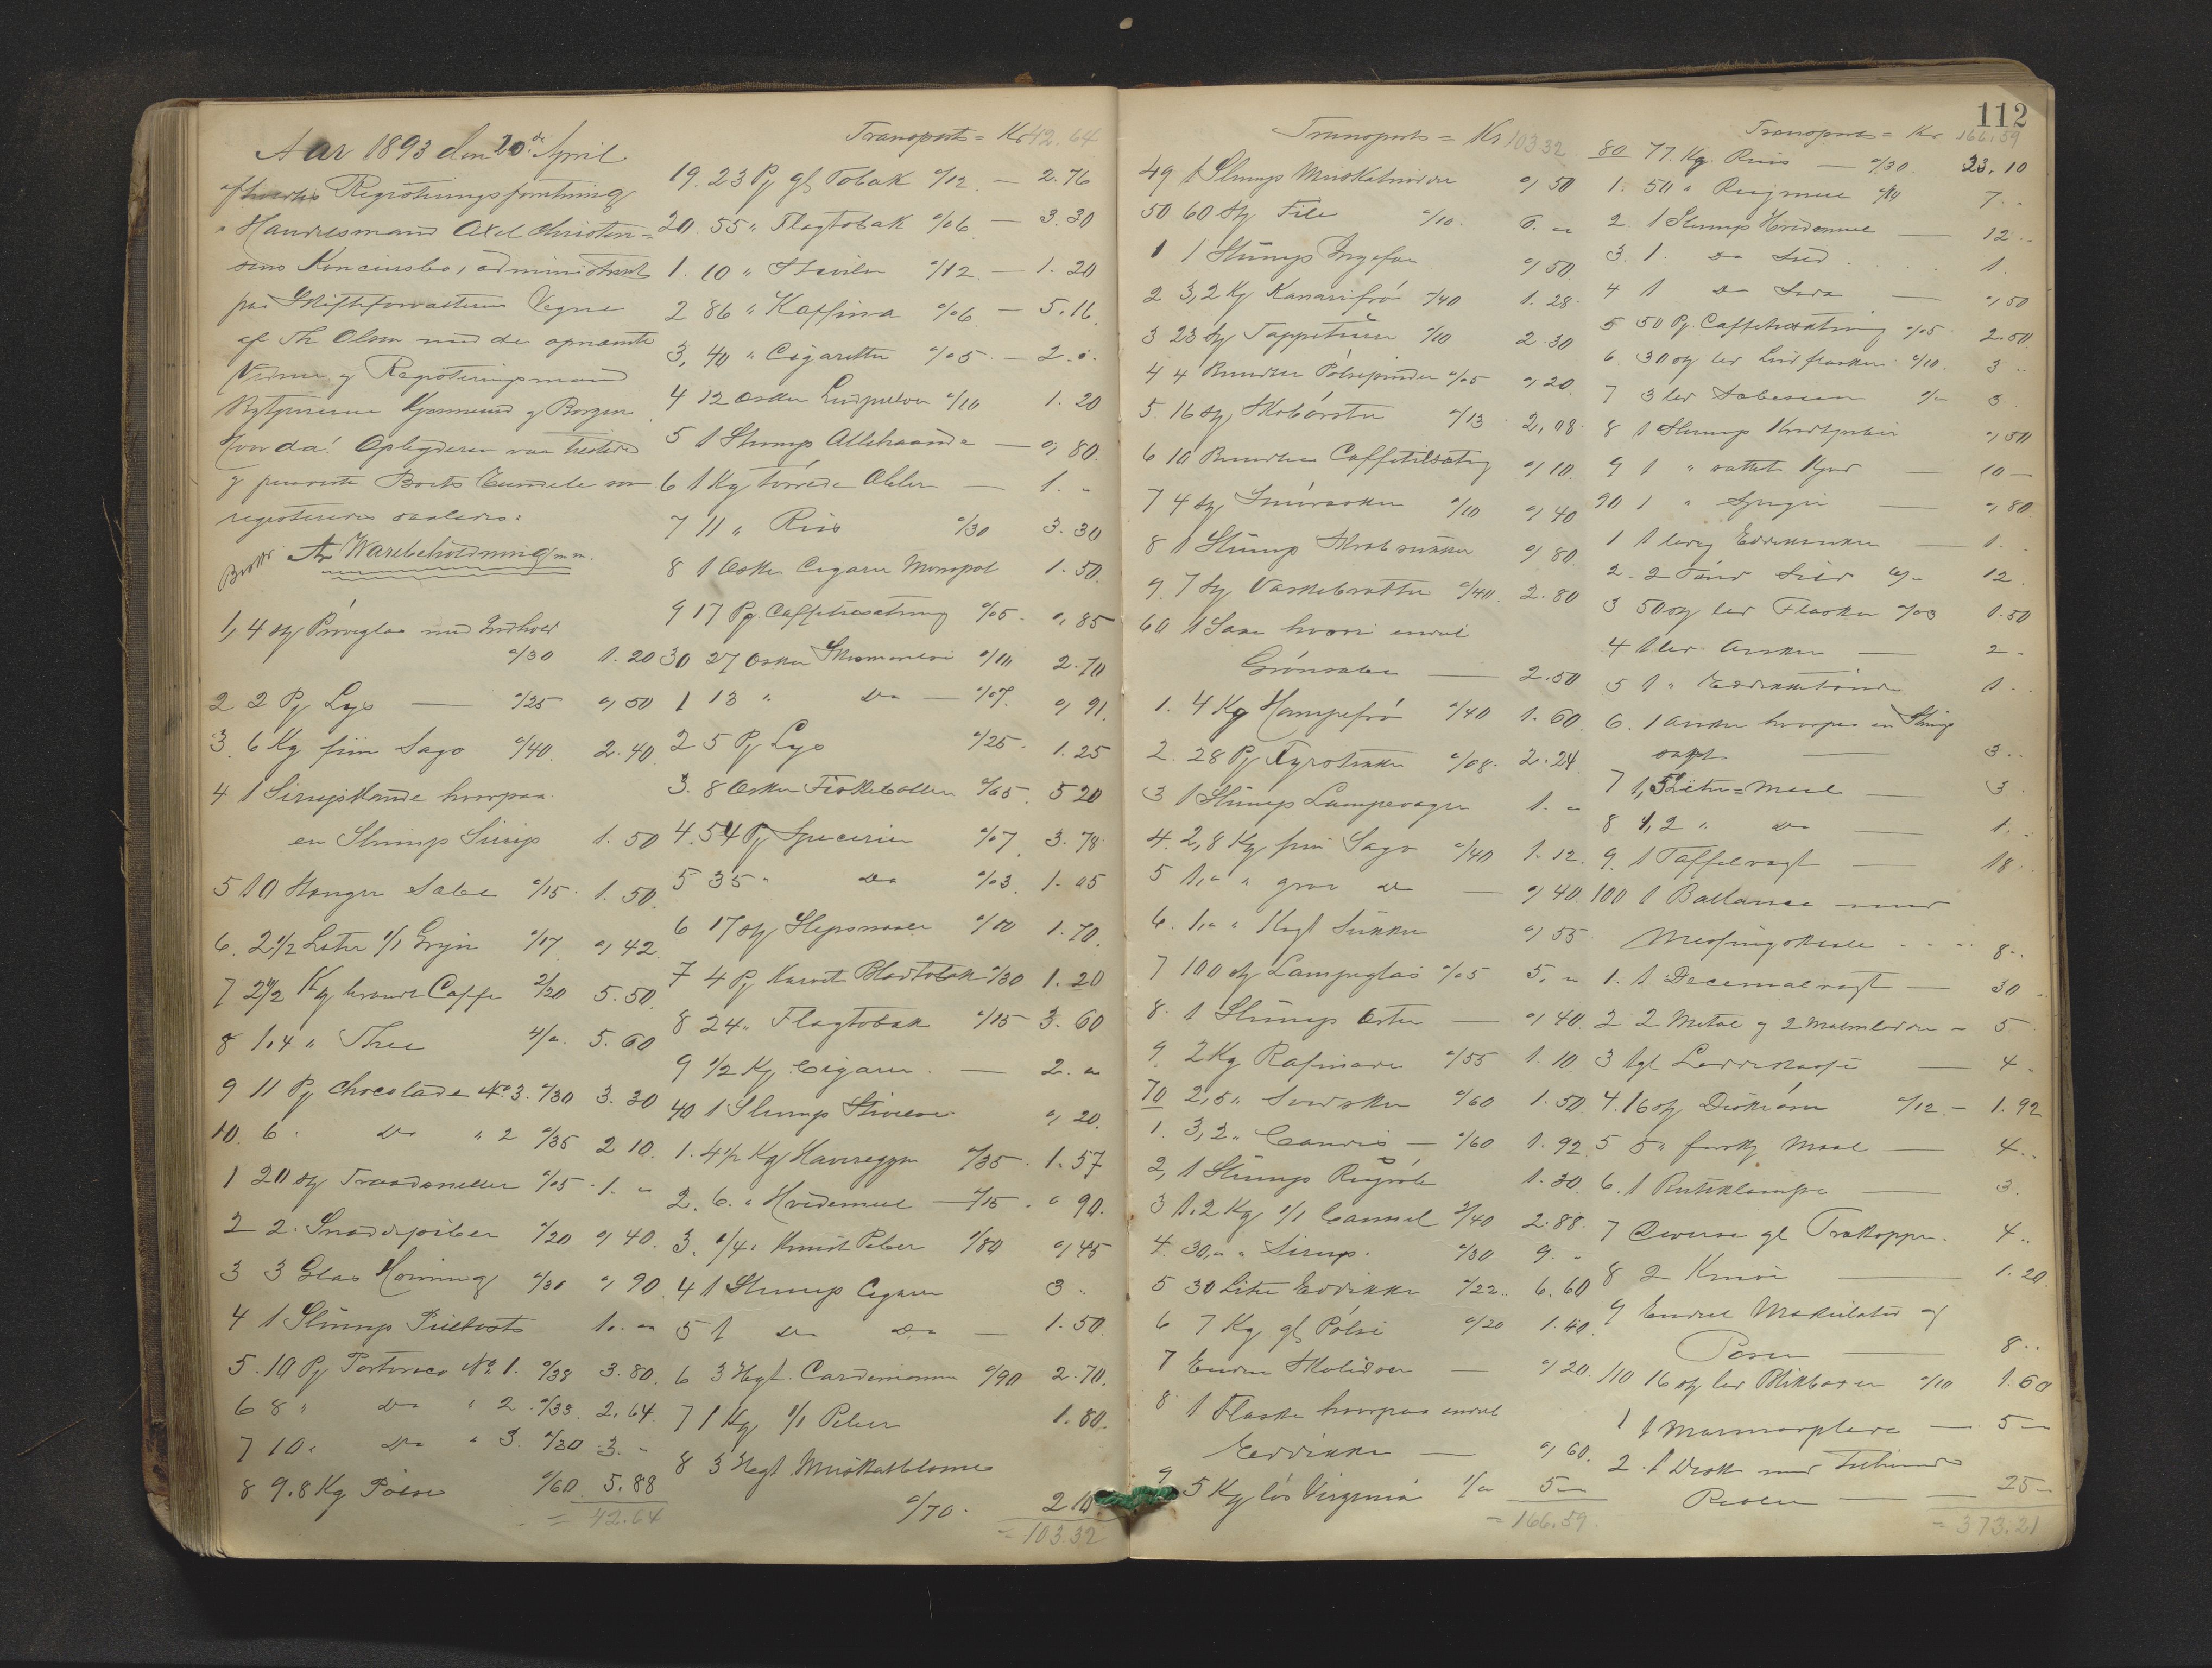 Aar 1893 den 20de April
afholdtes Registreringsforretning
i Handelsmand Axel Christen=
sens Koncursbo, administreret
paa Skifteforvalterens Vegne
af Th Olsen med de opnævnte
Vidner og Registeringsmænd
og Borgen
Hvorda! Opbyderen var tilstede
og Boets Eiendele som
registreredes saaledes:
A Varebeholdning m.m.
1, 4 stk Prøveglas med Indhold
a/30 1.20
2 2 Pk Lys — a/25 0,50
3. 6 Kg fiin Sago a/40. 2.40.
4 1 Sirupskande hvorpaa
en Slump Sirup 1.50
5 10 Stanger Sæbe a/15. 1.50.
6. 2 1/2 Liter 1/1 Gryn a/17 0,42
7 2 1/2 Kg brændt Caffe 2/20 5.50.
8 1.4 " Thee 4/" 5.60
9 11 Pk Chocolade No 3. a/30 3.30
10. 6 " Do " 2 a/35 2 10.
1 20 stk Traadsneller a/05 1. "
2 2. Snadepiber a/20 0,40.
3 3 Glas Honning a/30 0,90.
4 1 Slump 1. "
5. 10 Pk Portorico No 1. a/38 3.80.
6 8 " Do " 2. a/33. 2.64.
7 10 " Do " 3. a/30 3. "
8 9.8 Kg Pølse a/60. 5.88
= 42.64
Transport = Kr 42.64
19. 23 Pk gl Tobak a/12. — 2.76
20 55 " Flagtobak a/06 — 3.30
1. 10 " a/12 — 1.20
2 86 " Kaffina a/06 — 5.16.
3, 40 " Cigaretter a/05 — 2. "
4 12 Æsker Ludpulver a/10 1.20
5 1 Slump Allehaande — 0,80.
6 1 Kg tørrede Æbler — 1. -
7 11 " Riis a/30 3.30
8 1 Æske Cigarer Monopol 1.50.
9 17 Pk Caffetilsætning a/05 0,85
30 27 Æsker a/10 2.70
1 13 " Do — a/07. 0,91.
2 5 Pk Lys a/25. 1.25
3. 8 Æsker Fiskeboller a/65. 5 20
4. 54 Pk Specerier a/07. 3.78
5 35 " Do a/03. 1.05
6 17 stk a/10 1.70.
7 4 Pk Karvet Bladtobak a/30 1.20
8 24 " Flagtobak a/15 3.60
9 1/2 Kg Cigarer — 2. "
40 1 Slump Stivelse 0,20.
1. 4 1/2 Kg Havregryn a/35. 1.57
2. 6. " Hvedemeel — a/15. 0 90.
3. 1/4 " Knust Peber a/80 0,45
4 1 Slump Cigarer 3 "
5 1 Do Do — 1.50
6 3 Hegt. Cardemomme a/90 2.70.
7 1 Kg 1/1 Peber 1.80.
8 3 Hegt. Muskatblomme
a/70. 2 10
= 103.32
112
Transport = Kr 103 32
49 1 Slump Muskatnødder 0,50
50 60 stk File a/10. 6. "
1 1 Slump Ingefær 0,50
2 3,2 Kg Kanarifrø a/40 1.28.
3 23 stk a/10 2.30
4 4 Bundter Pølsepinder a/05 0,20.
5. 16 stk Skobørster a/13 2,08.
6 10 Bundter Caffetilsætng 0,10.
7 4 stk a/10 0,40
8 1 Slump 0,80.
9. 7 stk Vaskebrætter a/40. 2.80
60 1 Sæk hvori endel
Grønsæbe — 2.50
1. 4 Kg Hampefrø a/40 1.60
2. 28 Pk Fyrstikker a/08. 2.24
3 1 Slump Lampevæger 1. "
4. 2,8 Kg fiin Sago a/40 1.12.
5 1,- " grov Do — 0,40.
6. 1,- " Sukker 0,55.
7 100 stk Lampeglas a/05 5. "
8. 1 Slump — 0,40.
9. 2 Kg Rafinade a/55 1.10
70 2,5 " Svedsker a/60 1.50.
1. 3,2 " Candis — a/60 1.92.
2, 1 Slump 1.30
3 1.2 Kg 1/1 Canneel 2/40 2.88.
4. 30,- " Sirup. a/30 9. -
5 30 Liter Eddikke a/22. 6.60
6 7 Kg gl Pølse a/20 1.40.
7 Endel — 0,20.
8 1 Flaske hvorpaa endel
Eddikke — 0,60.
9 5 Kg løs Virginia 1/" 5 —
= 166.59.
Transport = Kr 166.59
80 77. Kg. Riis — a/30. 23.10
1. 50 " Rugmeel a/14 7 -
2. 1 Slump Hvedemeel — 12. -
3. 1. Do 1.
4 1 Do Soda — 0,50
5 50 Pk. Caffetilsætning a/05 2.50.
6. 30 stk led a/10. 3 "
7 3 led a/" 3
8 1 Slump 0,50
9 1 " saltet Kjød — 10 —
90 1 " — 0,80.
1 1 ledig Eddikanker — 1. -
2. 2 Tønder Sild 6/- 12.
3 50 stk led Flasker a/03 1.50
4 1 led Anker — 2 -
5 1 " Eddikketønde 1 -
6. 1 Anker hvorpaa en Slump
saft — 3 -
7 1, 5 Liter = Maal — 3.
8 1, 2 " Do — 1. -
9. 1 Taffelvægt — 18 -
100 1 Ballance med
Messingskaale - - - 8 -
1. 1 Decemalvægt — 30 -
2 2 Metal og 2 Malmlodder — 5
3 1 gl — 4 -
4. 16 stk a/12. — 1.92
5 5 " forskj Maal — 4 -
6. 1 Butiklampe — 3.
7 Diverse gl 4 "
8 2 Knive — 1.20.
9 Endel Makulatur og
Poser — 8 "
110 16 stk led Blikbøxer a/10 1.60
1 1 Marmorplade — 5 —
2. 1 Disk med Tilhørende
Reoler — 25 —
= 373.21